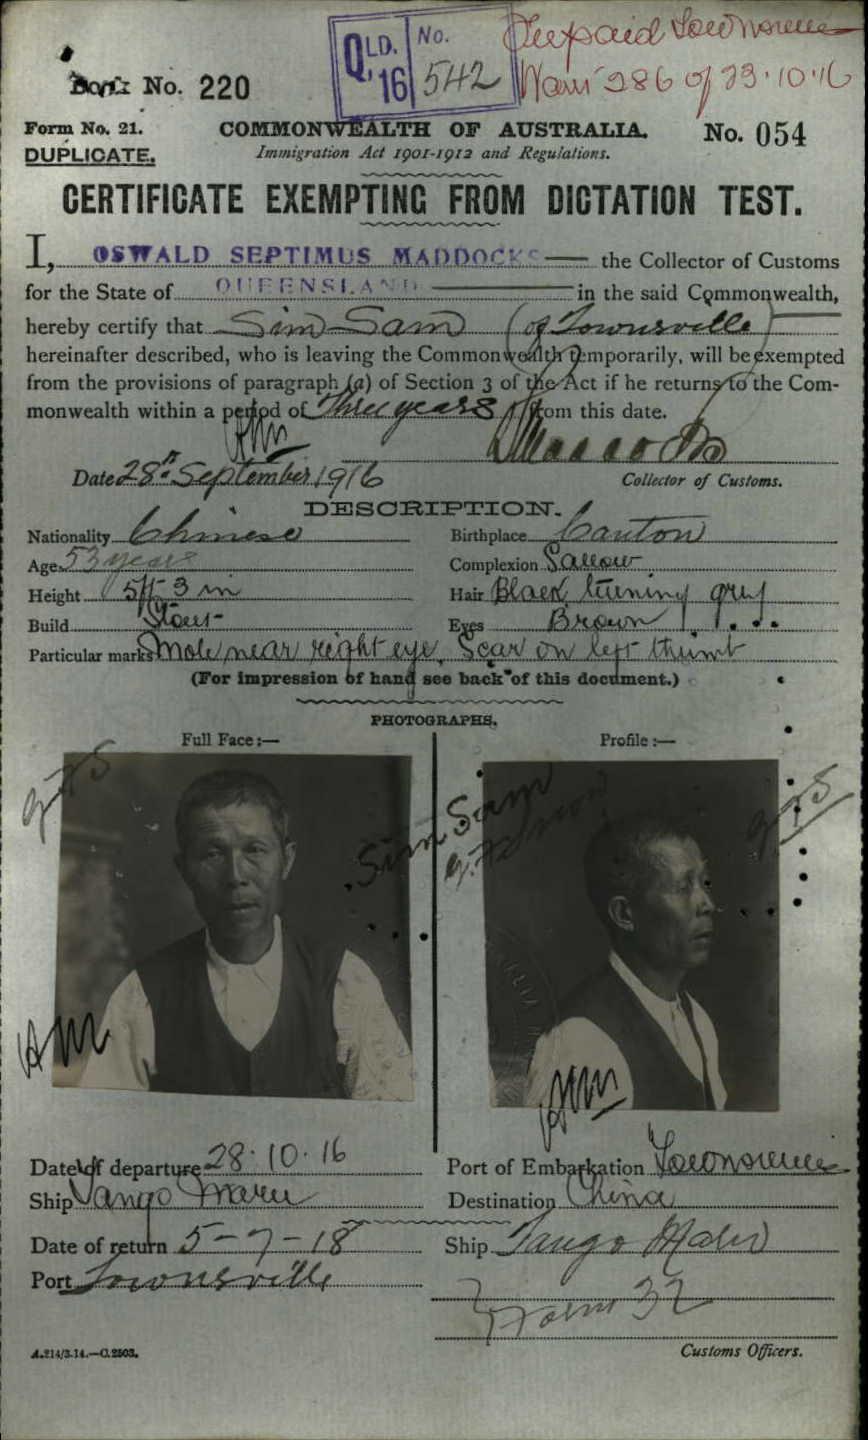 QLD. No.
'16 542
Townsville
286 of 23.10.16
Book No. 220
Form No. 21. COMMONWEALTH OF AUSTRALIA. No. 054
DUPLICATE. Immigration Act 1901-1912 and Regulations.
CERTIFICATE EXEMPTING FROM DICTATION TEST.
I, OSWALD SEPTIMUS MADDOCKS the Collector of Customs
for the State of QUEENSLAND in the said Commonwealth,
hereby certify that Sim Sam (of Townsville)
hereinafter described, who is leaving the Commonwealth temporarily, will be exempted
from the provisions of paragraph (a) of Section 3 of the Act if he returns to the Com-
monwealth within a period of Three years from this date.
Date 28th September 1916 Collector of Customs.
DESCRIPTION.
Nationality Chinese Birthplace Canton
Age 53 years Complexion Sallow
Height 5ft 3 in Hair Black turning grey
Build Stout Eyes Brown
Particular marks Mole near right eye. Scar on left thumb
(For impression of hand see back of this document.)
PHOTOGRAPHS.
Full Face:— Profile:—
Sim Sam
Date of departure 28.10.16 Port of Embarkation Townsville
Ship Tango Maru Destination China
Date of return 5-7-18 Ship Tango Maru
Port Townsville
Form 32
A.214/3.14.—C.2503. Customs Officers.